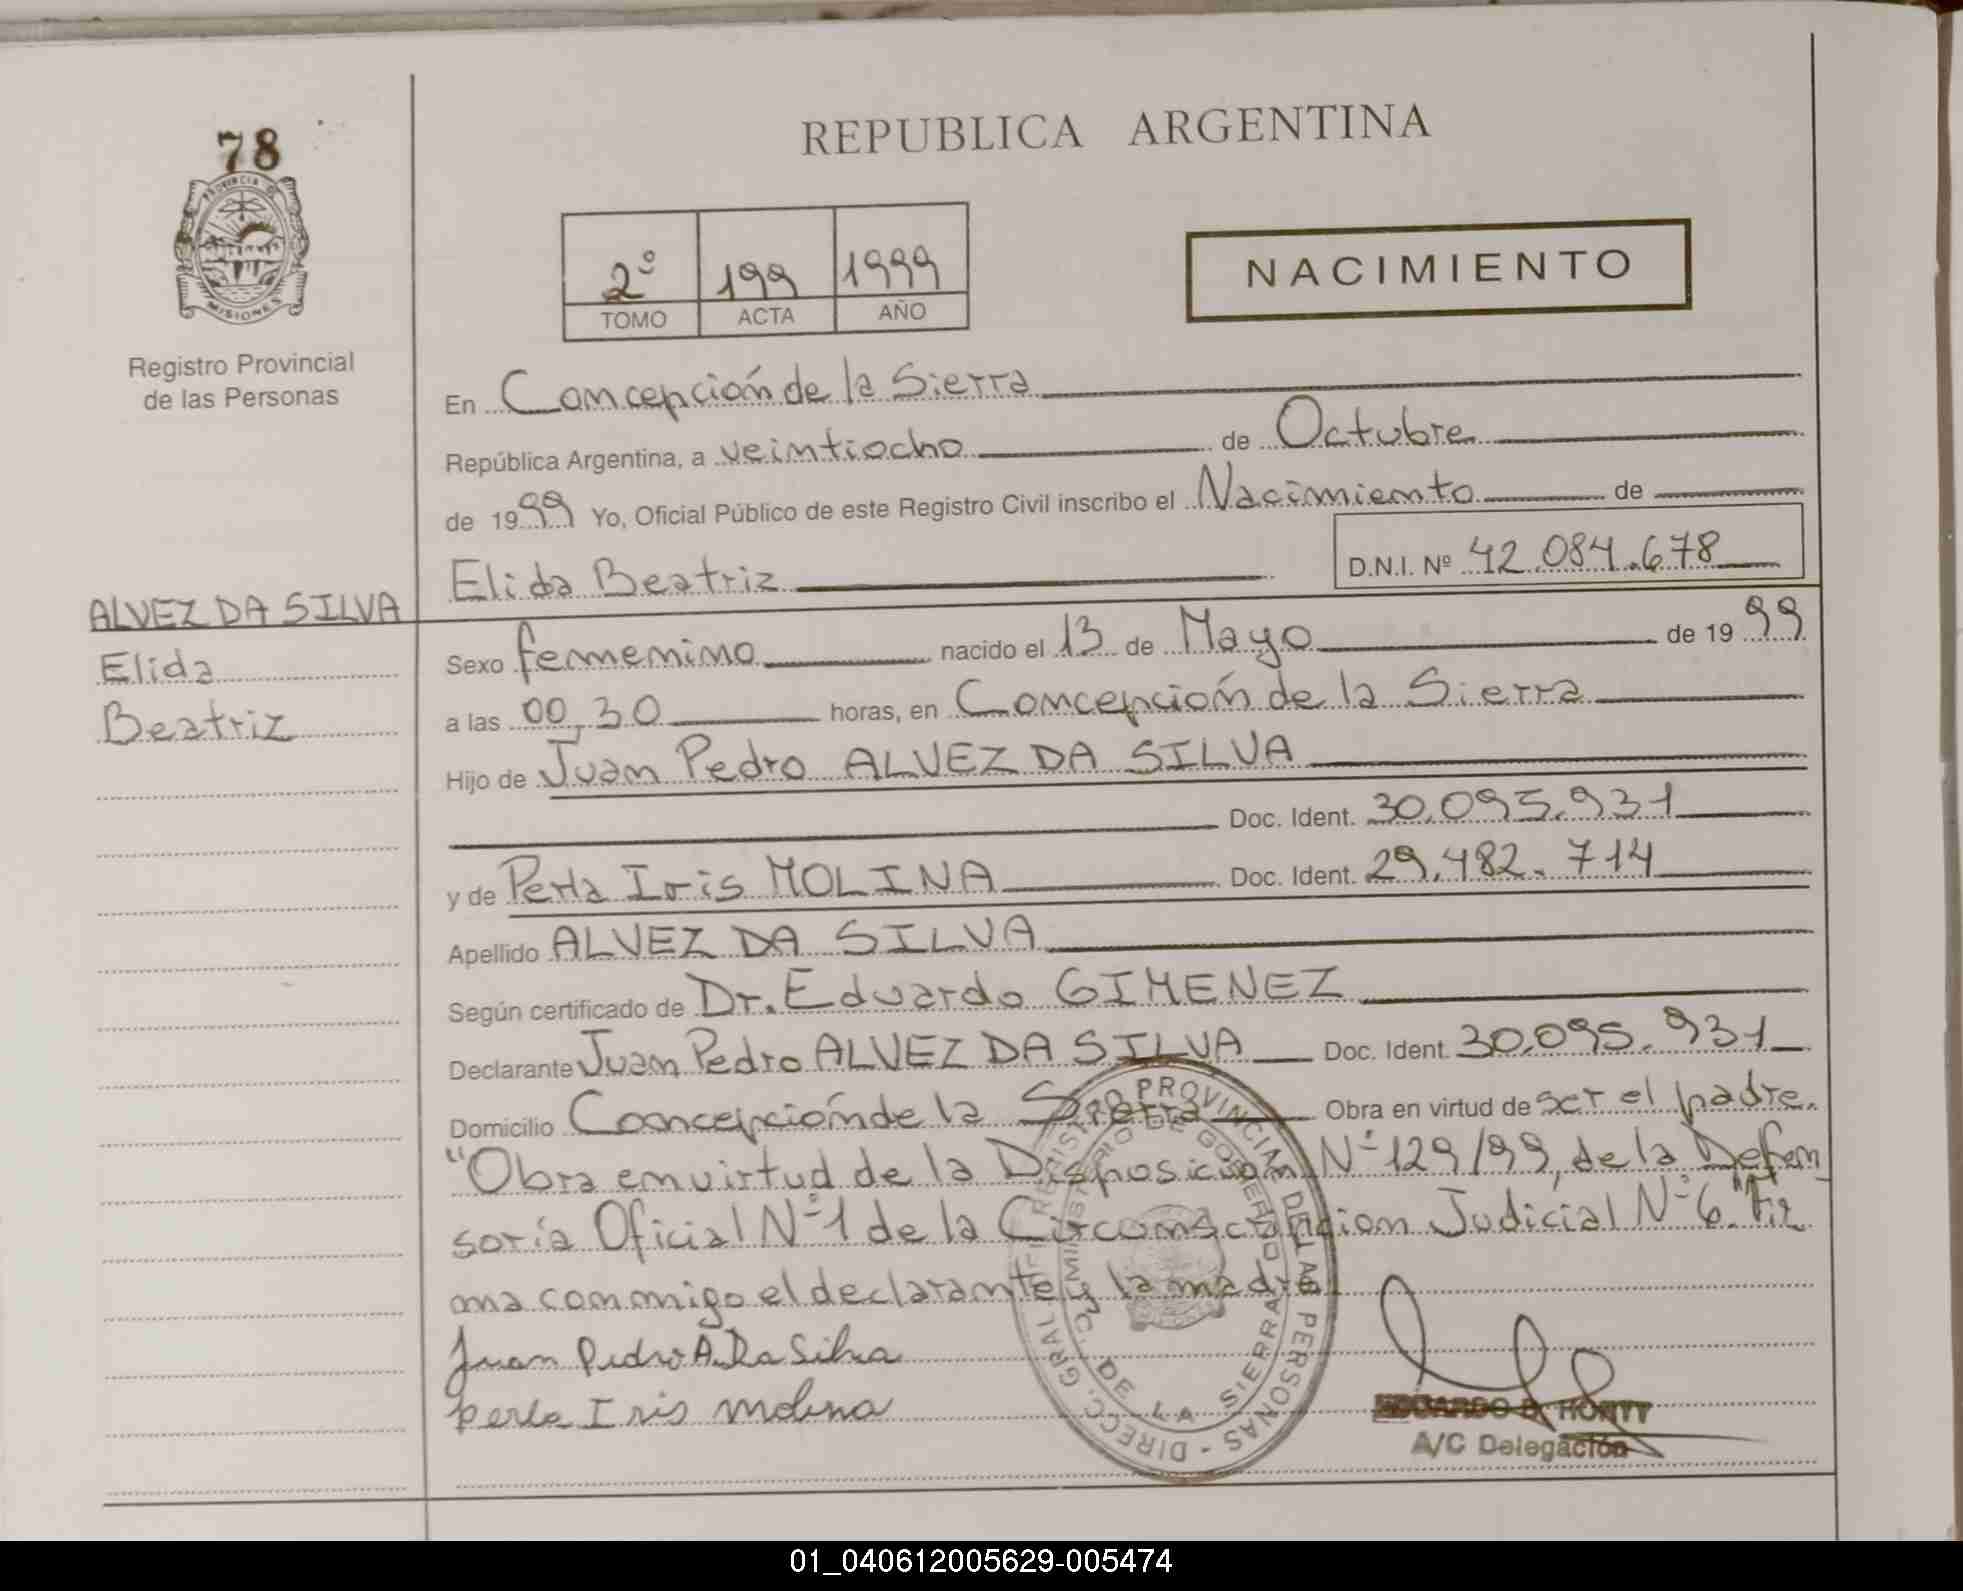 78
PROVINCIA DE
MISIONES
Registro Provincial
de las Personas
REPUBLICA ARGENTINA
2º 199 1999
TOMO ACTA AÑO
NACIMIENTO
En Concepción de la Sierra
República Argentina, a veintiocho de Octubre
de 1999 Yo, Oficial Público de este Registro Civil inscribo el Nacimiento de
Elida Beatriz D.N.I. Nº 42.084.678
ALVEZ DA SILVA
Elida
Beatriz
Sexo femenino nacido el 13 de Mayo de 1999
a las 00,30 horas, en Concepción de la Sierra
Hijo de Juan Pedro ALVEZ DA SILVA
Doc. Ident. 30.095.931
y de Perla Iris MOLINA Doc. Ident. 29.482.714
Apellido ALVEZ DA SILVA
Según certificado de Dr. Eduardo GIMENEZ
Declarante Juan Pedro ALVEZ DA SILVA Doc. Ident. 30.095.931
Domicilio Concepción de la Sierra Obra en virtud de ser el padre.
"Obra en virtud de la Disposicion Nº 129/99, de la Defen
soría Oficial Nº 1 de la Circunscripcion Judicial Nº 6." Fir
ma conmigo el declarante y la madre
Juan Pedro A. Da Silva
perla Iris molina
DIRECC. GRAL. REGISTRO PROVINCIAL DE LAS PERSONAS
MINISTERIO DE GOBIERNO
C. DE LA SIERRA
A/C Delegación
01_040612005629-005474